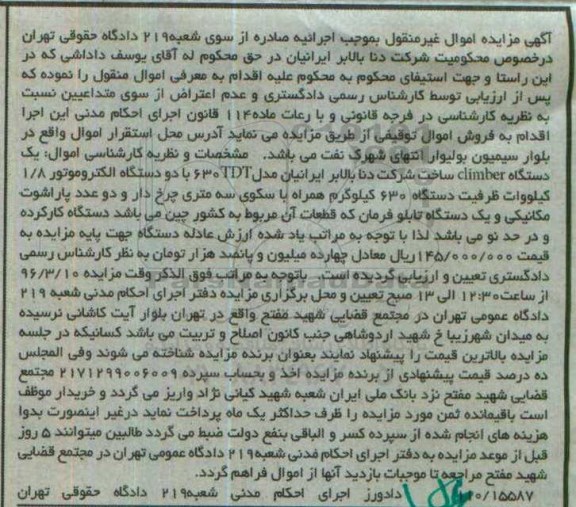 آگهی مزایده اموال غیرمنقول بموجب اجرائیه صادره از سوی شعبه۲۱۹ دادگاه حقوقی تهران
درخصوص محکومیت شرکت دنا بالابر ایرانیان در حق محکوم له آقای یوسف داداشی که در
این راستا و جهت استیفای محکوم به محکوم علیه اقدام به معرفی اموال منقول را نموده که
پس از ارزیابی توسط کارشناس رسمی دادگستری و عدم اعتراض از سوی متداعیین نسبت
به نظریه کارشناسی در فرجه قانونی و با رعات ماده۱۱۴ قانون اجرای احکام مدنی این اجرا
اقدام به فروش اموال توقیفی از طریق مزایده می نماید آدرس محل استقرار اموال واقع در
بلوار سیمیون بولیوار انتهای شهرک نفت می باشد. مشخصات و نظریه کارشناسی اموال: یک
دستگاه climber ساخت شرکت دنا بالابر ایرانیان مدل۶۳۰TDT با دو دستگاه الکتروموتور ۱/۸
کیلووات ظرفیت دستگاه ۶۳۰ کیلوگرم همراه با سکوی سه متری چرخ دار و دو عدد پاراشوت
مکانیکی و یک دستگاه تابلو فرمان که قطعات آن مربوط به کشور چین می باشد دستگاه کارکرده
و در حد نو می باشد لذا با توجه به مراتب یاد شده ارزش عادله دستگاه جهت پایه مزایده به
قیمت ۱۴۵/۰۰۰/۰۰۰ریال معادل چهارده میلیون و پانصد هزار تومان به نظر کارشناس رسمی
دادگستری تعیین و ارزیابی گردیده است. باتوجه به مراتب فوق الذکر وقت مزایده ۹۶/۳/۱۰
از ساعت۱۲:۳۰ الی ۱۳ صبح تعیین و محل برگزاری مزایده دفتر اجرای احکام مدنی شعبه ۲۱۹
دادگاه عمومی تهران در مجتمع قضایی شهید مفتح واقع در تهران بلوار آیت کاشانی نرسیده
به میدان شهرزیبا خ شهید اردوشاهی جنب کانون اصلاح و تربیت می باشد کسانیکه در جلسه
مزایده بالاترین قیمت را پیشنهاد نمایند بعنوان برنده مزایده شناخته می شوند وفی المجلس
ده درصد قیمت پیشنهادی از برنده مزایده اخذ و بحساب سپرده ۲۱۷۱۲۹۹۰۰۶۰۰۹ مجتمع
قضایی شهید مفتح نزد بانک ملی ایران شعبه شهید کیانی نژاد واریز می گردد و خریدار موظف
است باقیمانده ثمن مورد مزایده را ظرف حداکثر یک ماه پرداخت نماید درغیر اینصورت بدوا
هزینه های انجام شده از سپرده کسر و الباقی بنفع دولت ضبط می گردد طالبین میتوانند ۵ روز
قبل از موعد مزایده به دفتر اجرای احکام مدنی شعبه۲۱۹ دادگاه عمومی تهران در مجتمع قضایی
شهید مفتح مراجعه تا موجبات بازدید آنها از اموال فراهم گردد.
دادورز اجرای احکام مدنی شعبه۲۱۹ دادگاه حقوقی تهران